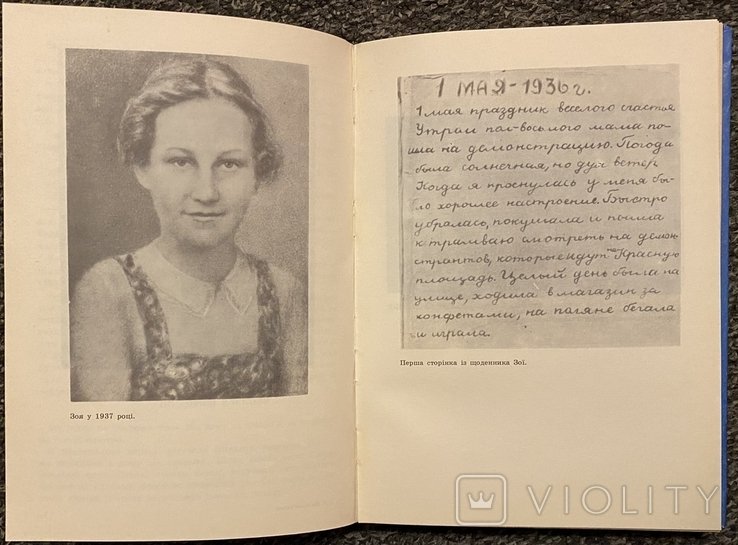 Зоя у 1937 році.
1 МАЯ-1936г.
1 мая праздник веселого счастья
Утрам пол-восьмого мама по-
шла на демонстрацию. Погода
была солнечная, но дул ветер
Когда я проснулась у меня бы-
ло хорошее настроение. Быстро
убралась, покушала и пошла
к трамваю смотреть на демон-
странтов, которые идут на Красную
площадь. Целый день была на
улице, ходила в магазин за
конфетами, на паляне бегала
и играла.
Перша сторінка із щоденника Зої.
VIOLITY